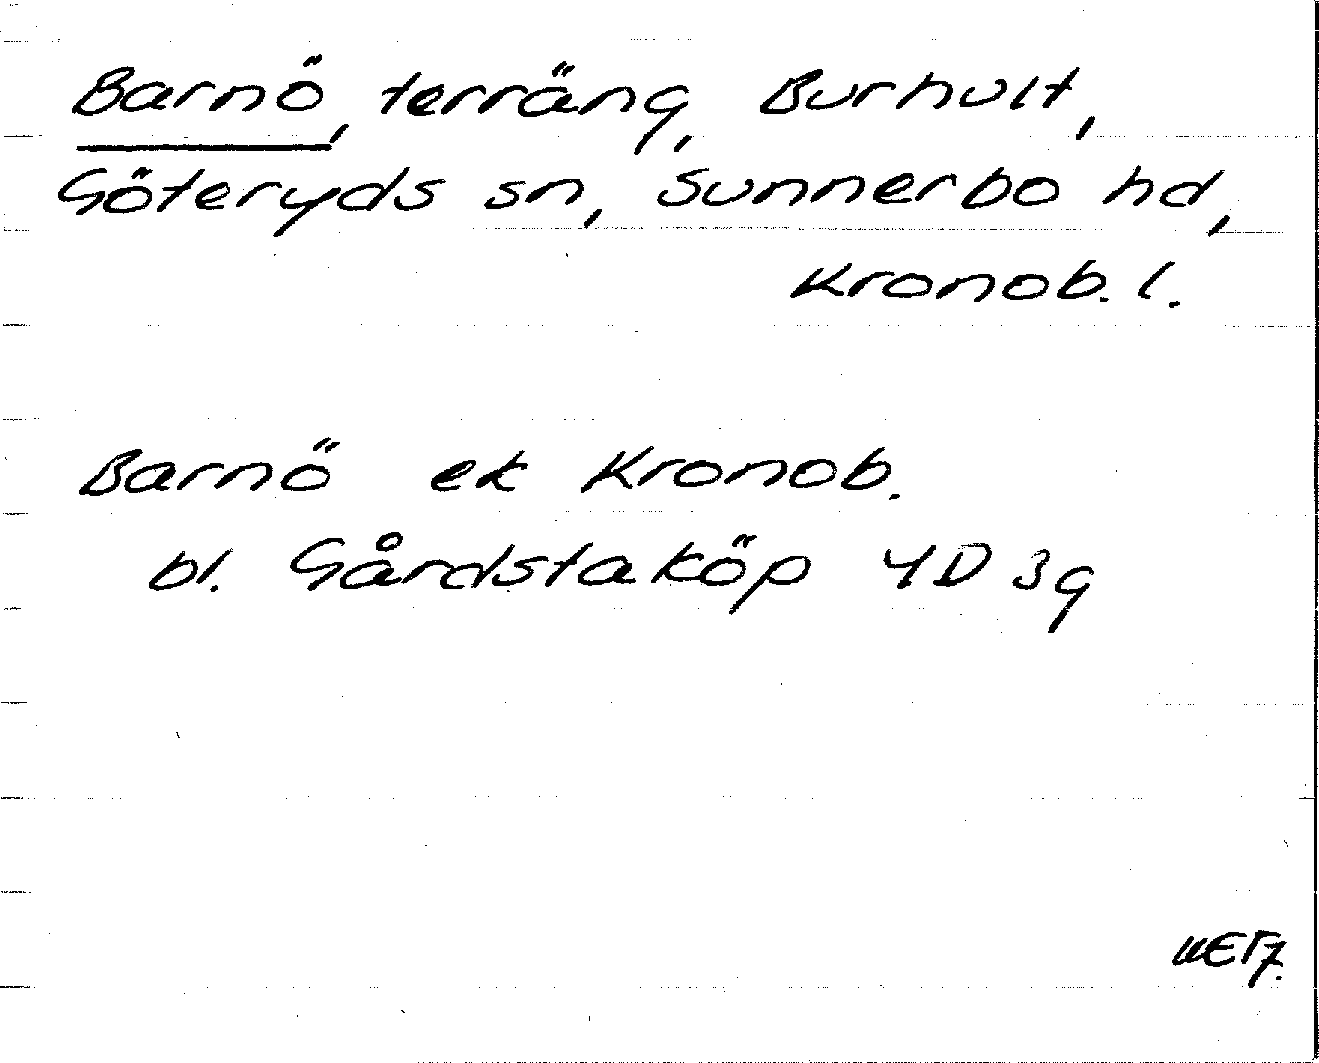 Barnö, terräng, Burhult,
Göteryds sn, Sunnerbo hd,
Kronob. l.
Barnö ek Kronob.
bl. Gårdstaköp 4D 3g